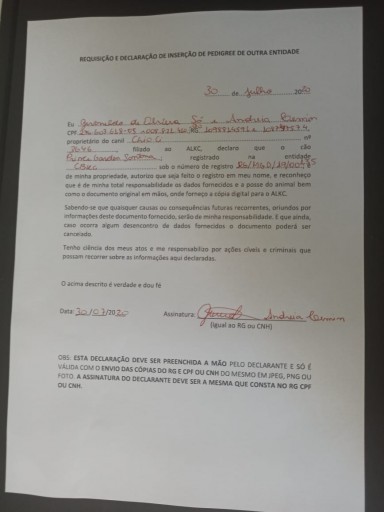 REQUISIÇÃO E DECLARAÇÃO DE INSERÇÃO DE PEDIGREE DE OUTRA ENTIDADE
30 de Julho 2020
Eu de Oliveira Só e Andreia
CPF
proprietário de canil nº
filiada ao ALKC, declara que o cão
registrado na entidade
sob o número de registro
de minha propriedade, autorizo que seja feito o registro em meu nome, e reconheço
que é de minha total responsabilidade os dados fornecidos e a posse do animal bem
como o documento original em mãos, onde forneço a cópia digital para o ALKC.
Sabendo-se que quaisquer causas ou consequências futuras recorrentes, oriundos por
informações deste documento fornecido, serão de minha responsabilidade. E que ainda,
caso ocorra algum desencontro de dados fornecidos o documento poderá ser
cancelado.
Tenho ciência dos meus atos e me responsabilizo por ações cíveis e criminais que
possam recorrer sobre as informações aqui declaradas.
O acima descrito é verdade e dou fé
Data: 30/07/2020 Assinatura: Andreia
(Igual ao RG ou CNH)
OBS: ESTA DECLARAÇÃO DEVE SER PREENCHIDA A MÃO PELO DECLARANTE E SÓ É
VÁLIDA COM O ENVIO DAS CÓPIAS DO RG E CPF OU CNH DO MESMO EM JPEG, PNG OU
FOTO. A ASSINATURA DO DECLARANTE DEVE SER A MESMA QUE CONSTA NO RG CPF
OU CNH.